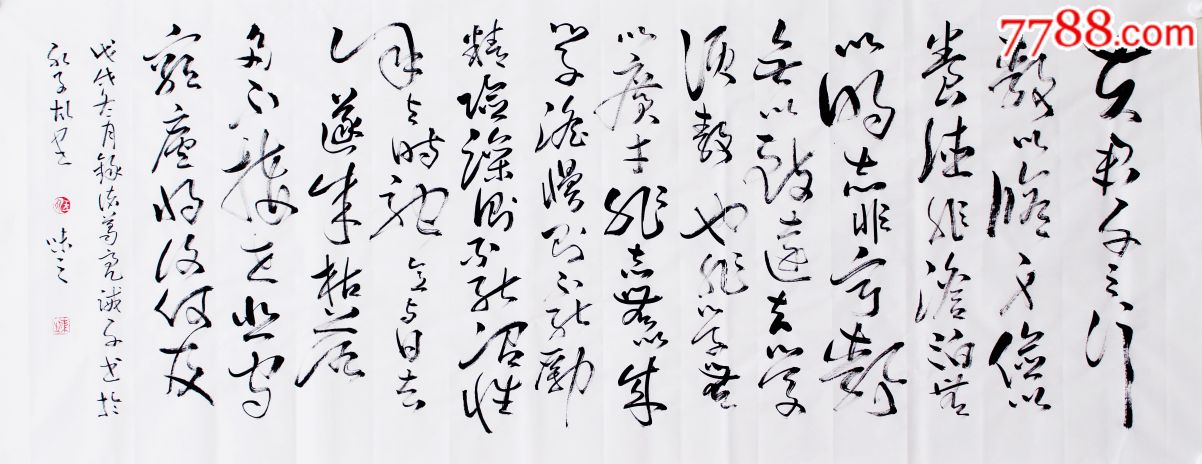 7788.com
夫君子之行
静以修身儉以
養德非澹泊無
以明志非寧静
無以致遠夫學
須静也非學無
以廣才非志無以成
學滔慢則不能勵
精險躁則不能治性
年与時馳意与日去
遂成枯落
多不接世悲守
窮廬將復何及
戊戌冬月録諸葛亮誡子書於